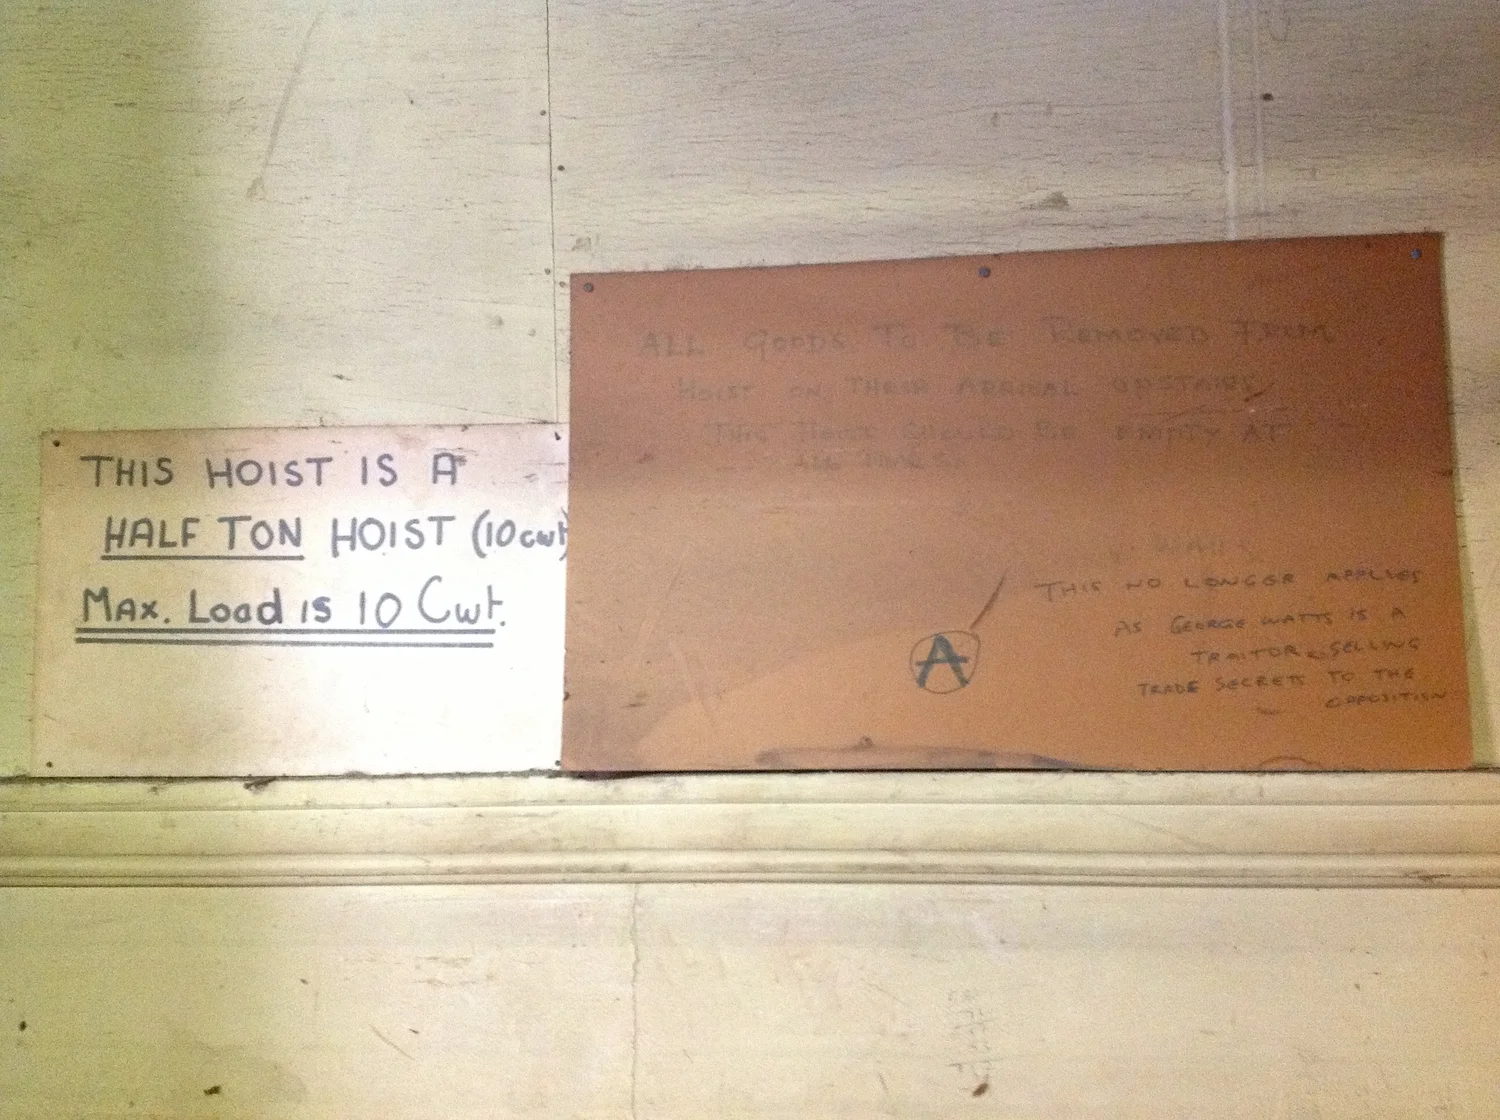 THIS HOIST IS A
HALF TON HOIST (10cwt)
MAX. Load is 10 Cwt.
ALL GOODS TO BE REMOVED FROM
HOIST ON THEIR ARRIVAL UPSTAIRS
THE HOIST SHOULD BE EMPTY AT
ALL TIMES
THIS NO LONGER APPLIES
AS GEORGE WATTS IS A
TRAITOR SELLING
TRADE SECRETS TO THE
OPPOSITION
A